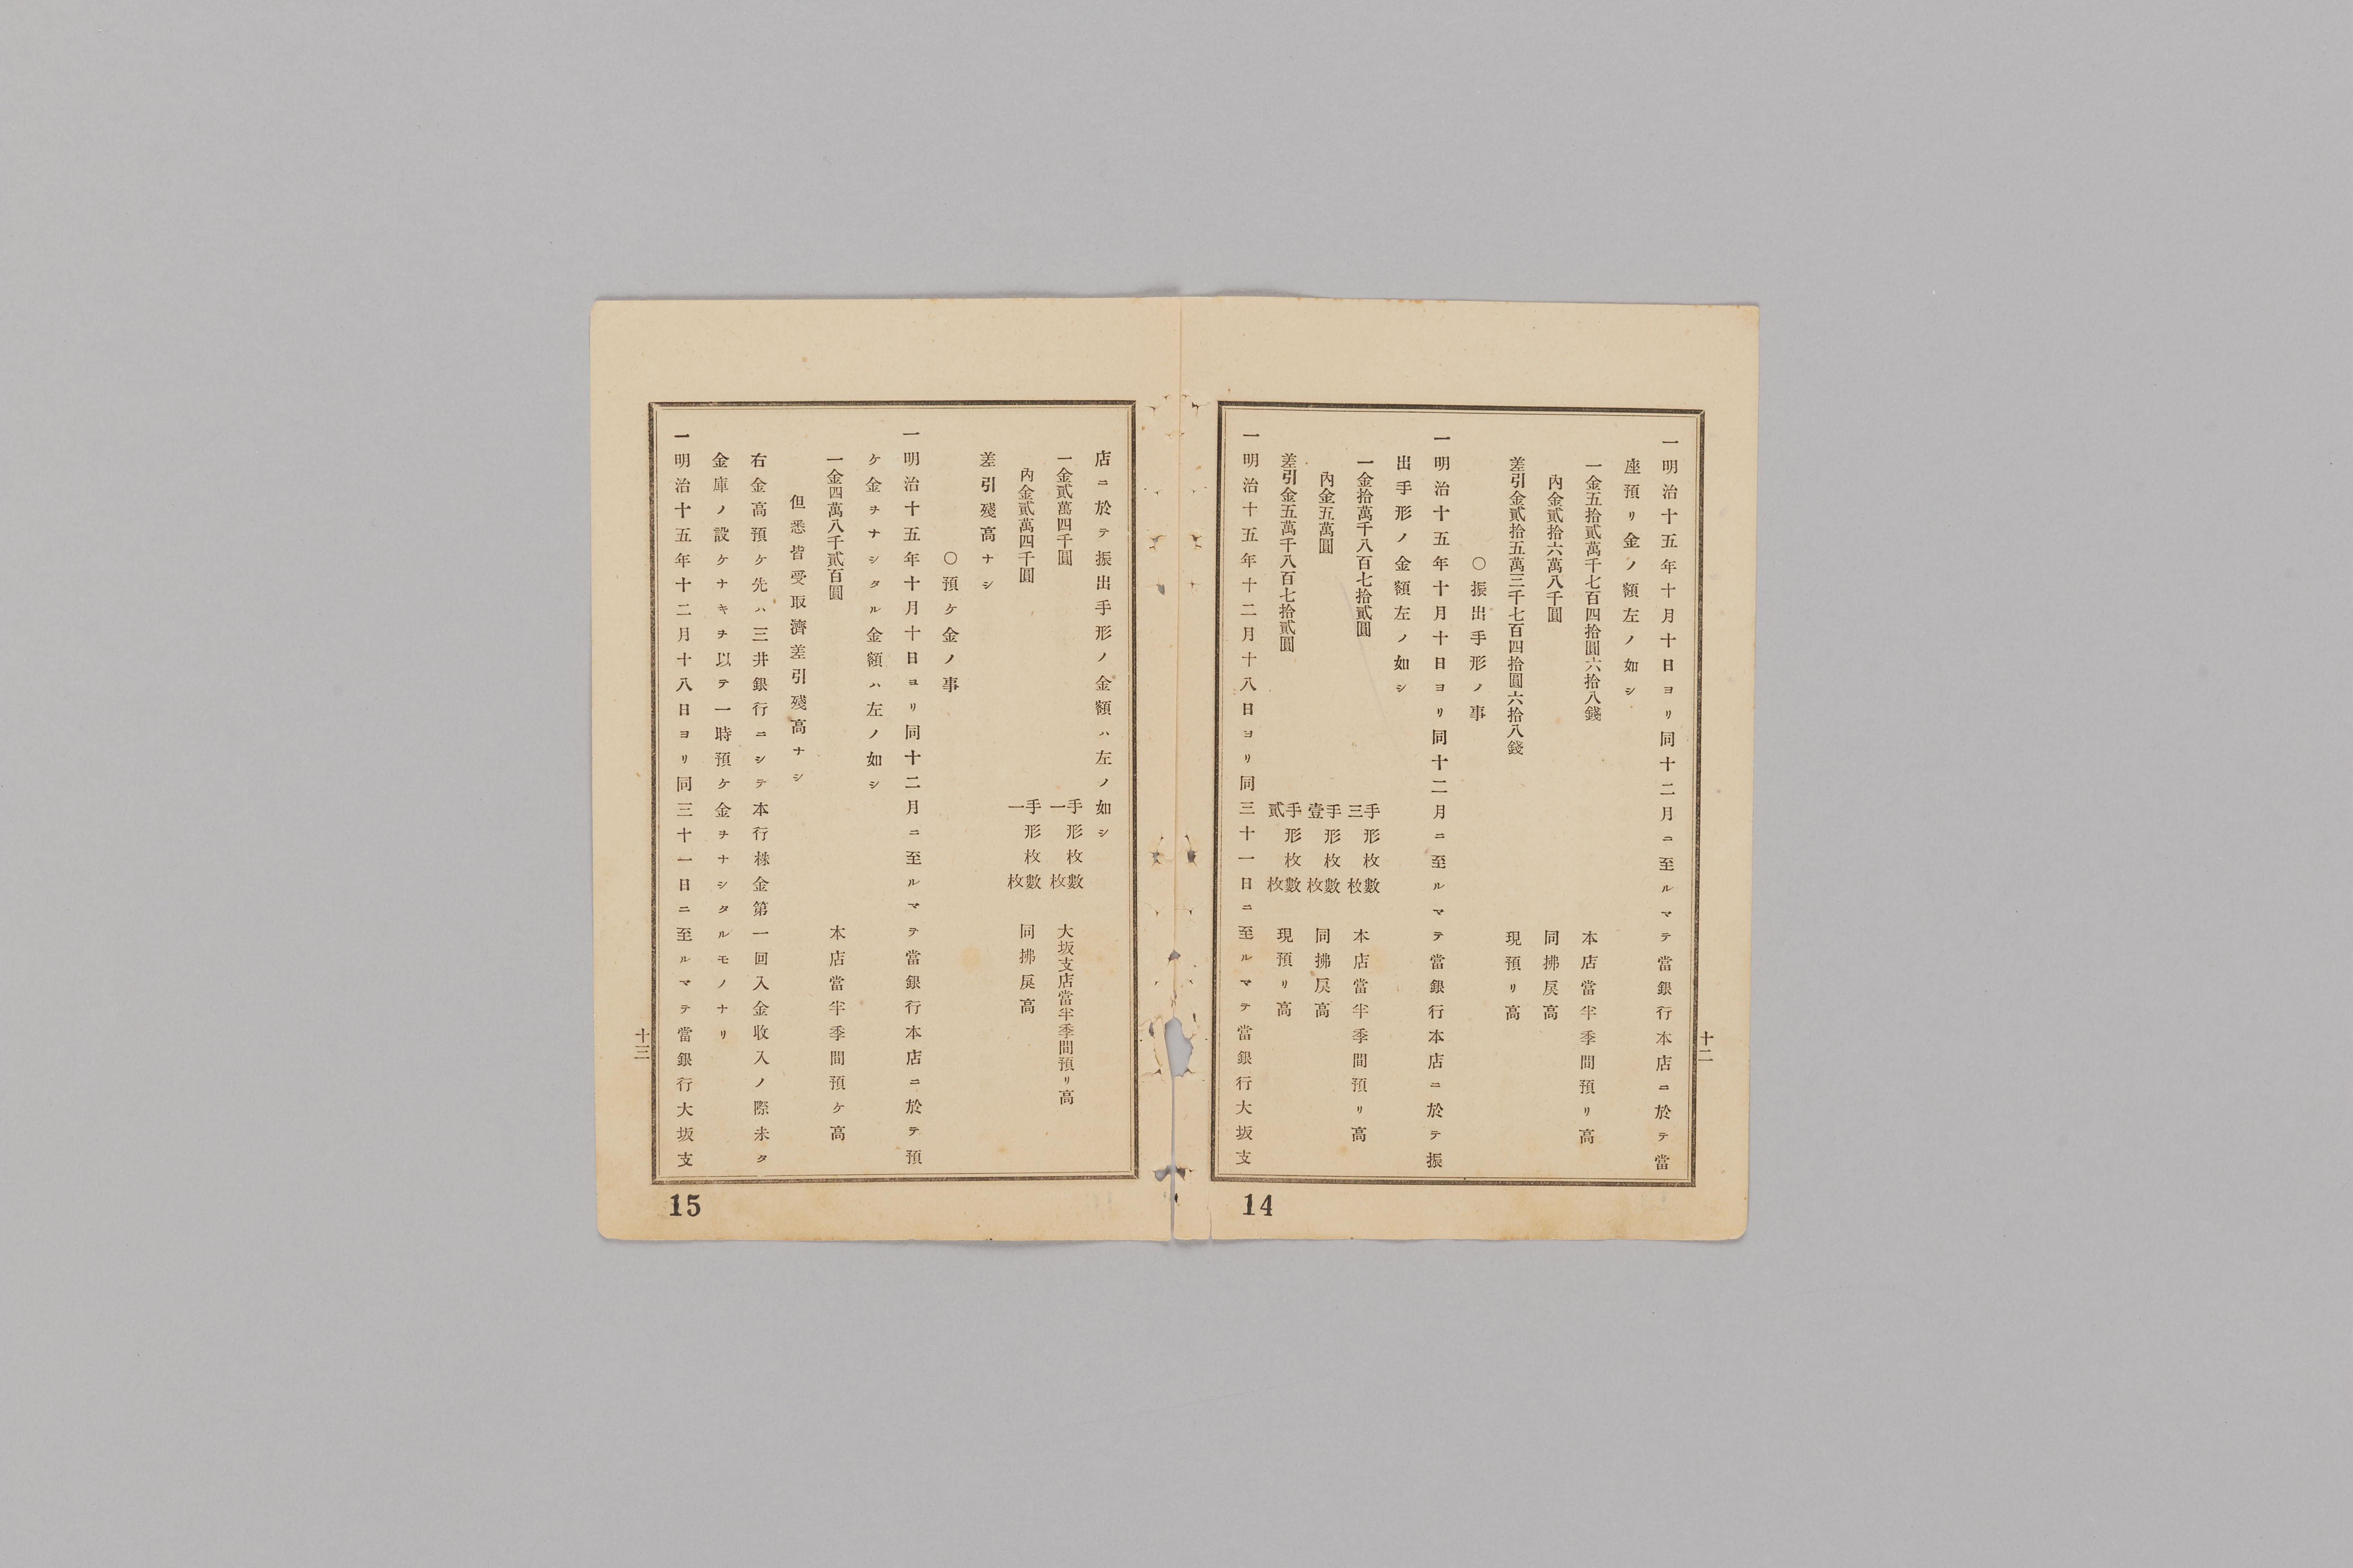 一明治十五年十月十日ヨリ同十二月ニ至ルマテ當銀行本店ニ於テ當
座預リ金ノ額左ノ如シ
一金五拾貳萬千七百四拾圓六拾八錢 本店當半季間預リ高
內金貳拾六萬八千圓 同拂戻高
差引金貳拾五萬三千七百四拾圓六拾八錢 現預リ高
〇振出手形ノ事
一明治十五年十月十日ヨリ同十二月ニ至ルマテ當銀行本店ニ於テ振
出手形ノ金額左ノ如シ
一金拾萬千八百七拾貳圓 手形枚數三枚 本店當半季間預リ高
內金五萬圓 手形枚數壹枚 同拂戻高
差引金五萬千八百七拾貳圓 手形枚數貳枚 現預リ高
一明治十五年十二月十八日ヨリ同三十一日ニ至ルマテ當銀行大坂支
十二
14
店ニ於テ振出手形ノ金額ハ左ノ如シ
一金貳萬四千圓 手形枚數一枚 大坂支店當半季間預リ高
內金貳萬四千圓 手形枚數一枚 同拂戻高
差引殘高ナシ
〇預ケ金ノ事
一明治十五年十月十日ヨリ同十二月ニ至ルマテ當銀行本店ニ於テ預
ケ金ヲナシタル金額ハ左ノ如シ
一金四萬八千貳百圓 本店當半季間預ケ高
但悉皆受取濟差引殘高ナシ
右金高預ケ先ハ三井銀行ニシテ本行株金第一回入金收入ノ際未タ
金庫ノ設ケナキヲ以テ一時預ケ金ヲナシタルモノナリ
一明治十五年十二月十八日ヨリ同三十一日ニ至ルマテ當銀行大坂支
十三
15